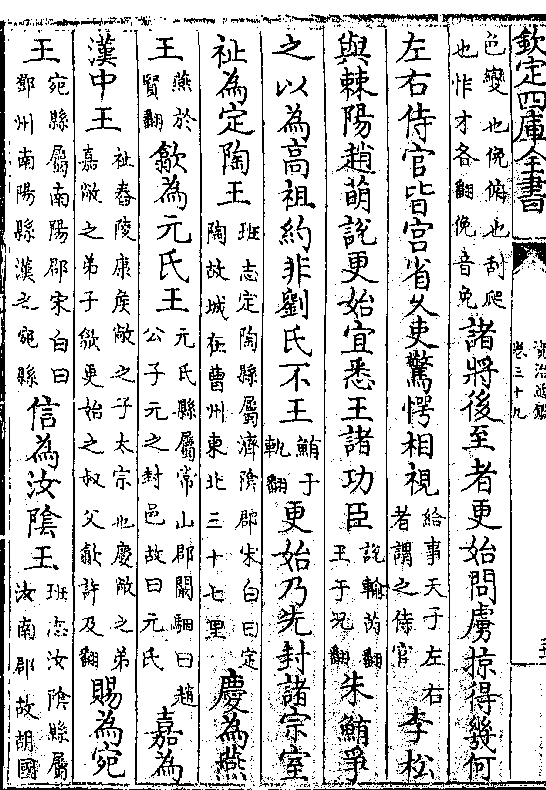 欽定四庫全書
資治通鑑
卷三十九
色變也俛俯也刮爬
也怍才各翻俛音免
諸將後至者更始問虜掠得幾何
左右侍官皆宫省久吏驚愕相視
給事天子左右
者謂之侍官
李松
與棘陽趙萌說更始宜悉王諸功臣
說輸芮翻
王于况翻
朱鮪爭
之以為高祖約非劉氏不王
鮪于
軌翻
更始乃先封諸宗室
祉為定陶王
班志定陶縣屬濟隂郡宋白曰定
陶故城在曹州東北三十七里
慶為燕
王
燕於
賢翻
歙為元氏王
元氏縣屬常山郡闞駰曰趙
公子元之封邑故曰元氏
嘉為
漢中王
祉舂陵康侯敞之子太宗也慶敞之弟
嘉敞之弟子歙更始之叔父歙許及翻
賜為宛
王
宛縣屬南陽郡宋白曰
鄧州南陽縣漢之宛縣
信為汝隂王
班志汝隂縣屬
汝南郡故胡國